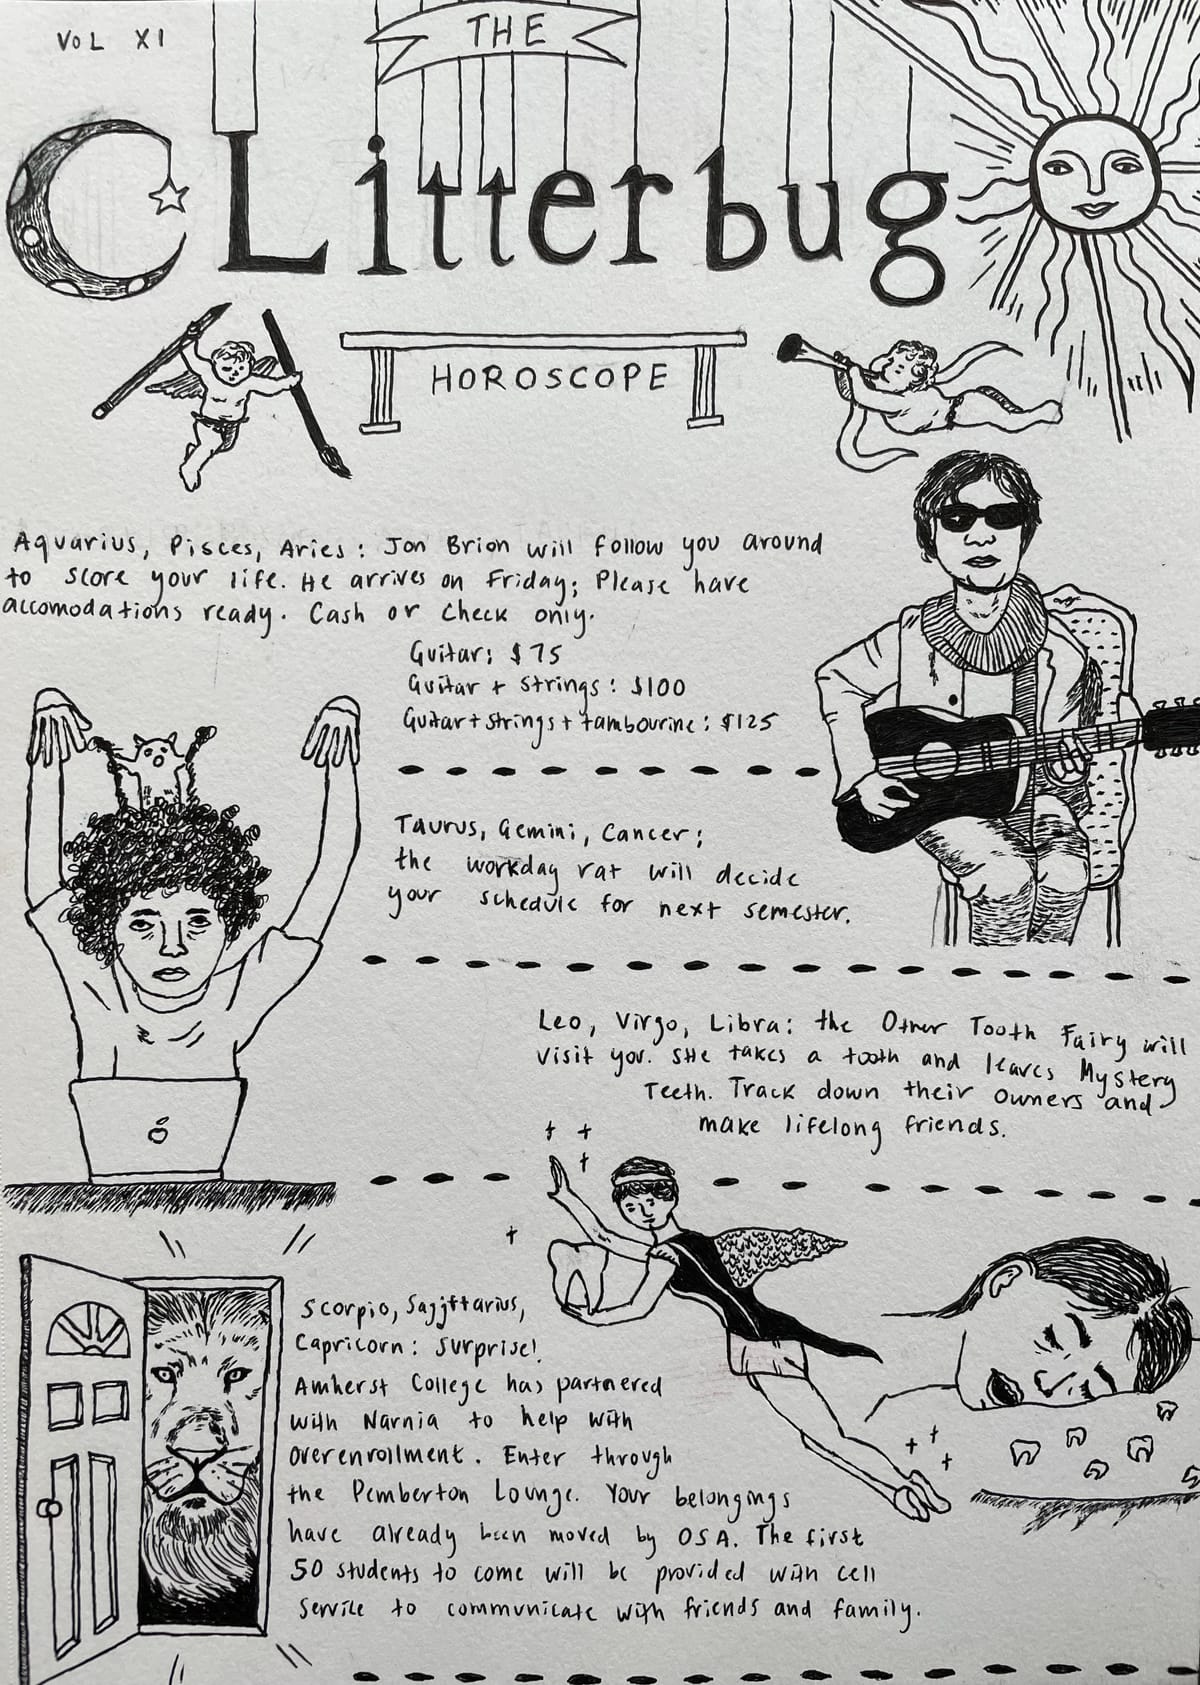 VOL XI
THE
CLitterbug
HOROSCOPE
Aquarius, Pisces, Aries: Jon Brion will follow you around
to score your life. He arrives on Friday; Please have
accomodations ready. Cash or check only.
Guitar: $75
Guitar + Strings: $100
Guitar + strings + tambourine: $125
Taurus, Gemini, Cancer;
the workday rat will decide
your schedule for next semester.
Leo, Virgo, Libra: the Other Tooth Fairy will
visit you. She takes a tooth and leaves Mystery
Teeth. Track down their owners and
make lifelong friends.
Scorpio, Sagittarius,
Capricorn: Surprise!
Amherst College has partnered
with Narnia to help with
overenrollment. Enter through
the Pemberton Lounge. Your belongings
have already been moved by OSA. The first
50 students to come will be provided with cell
service to communicate with friends and family.